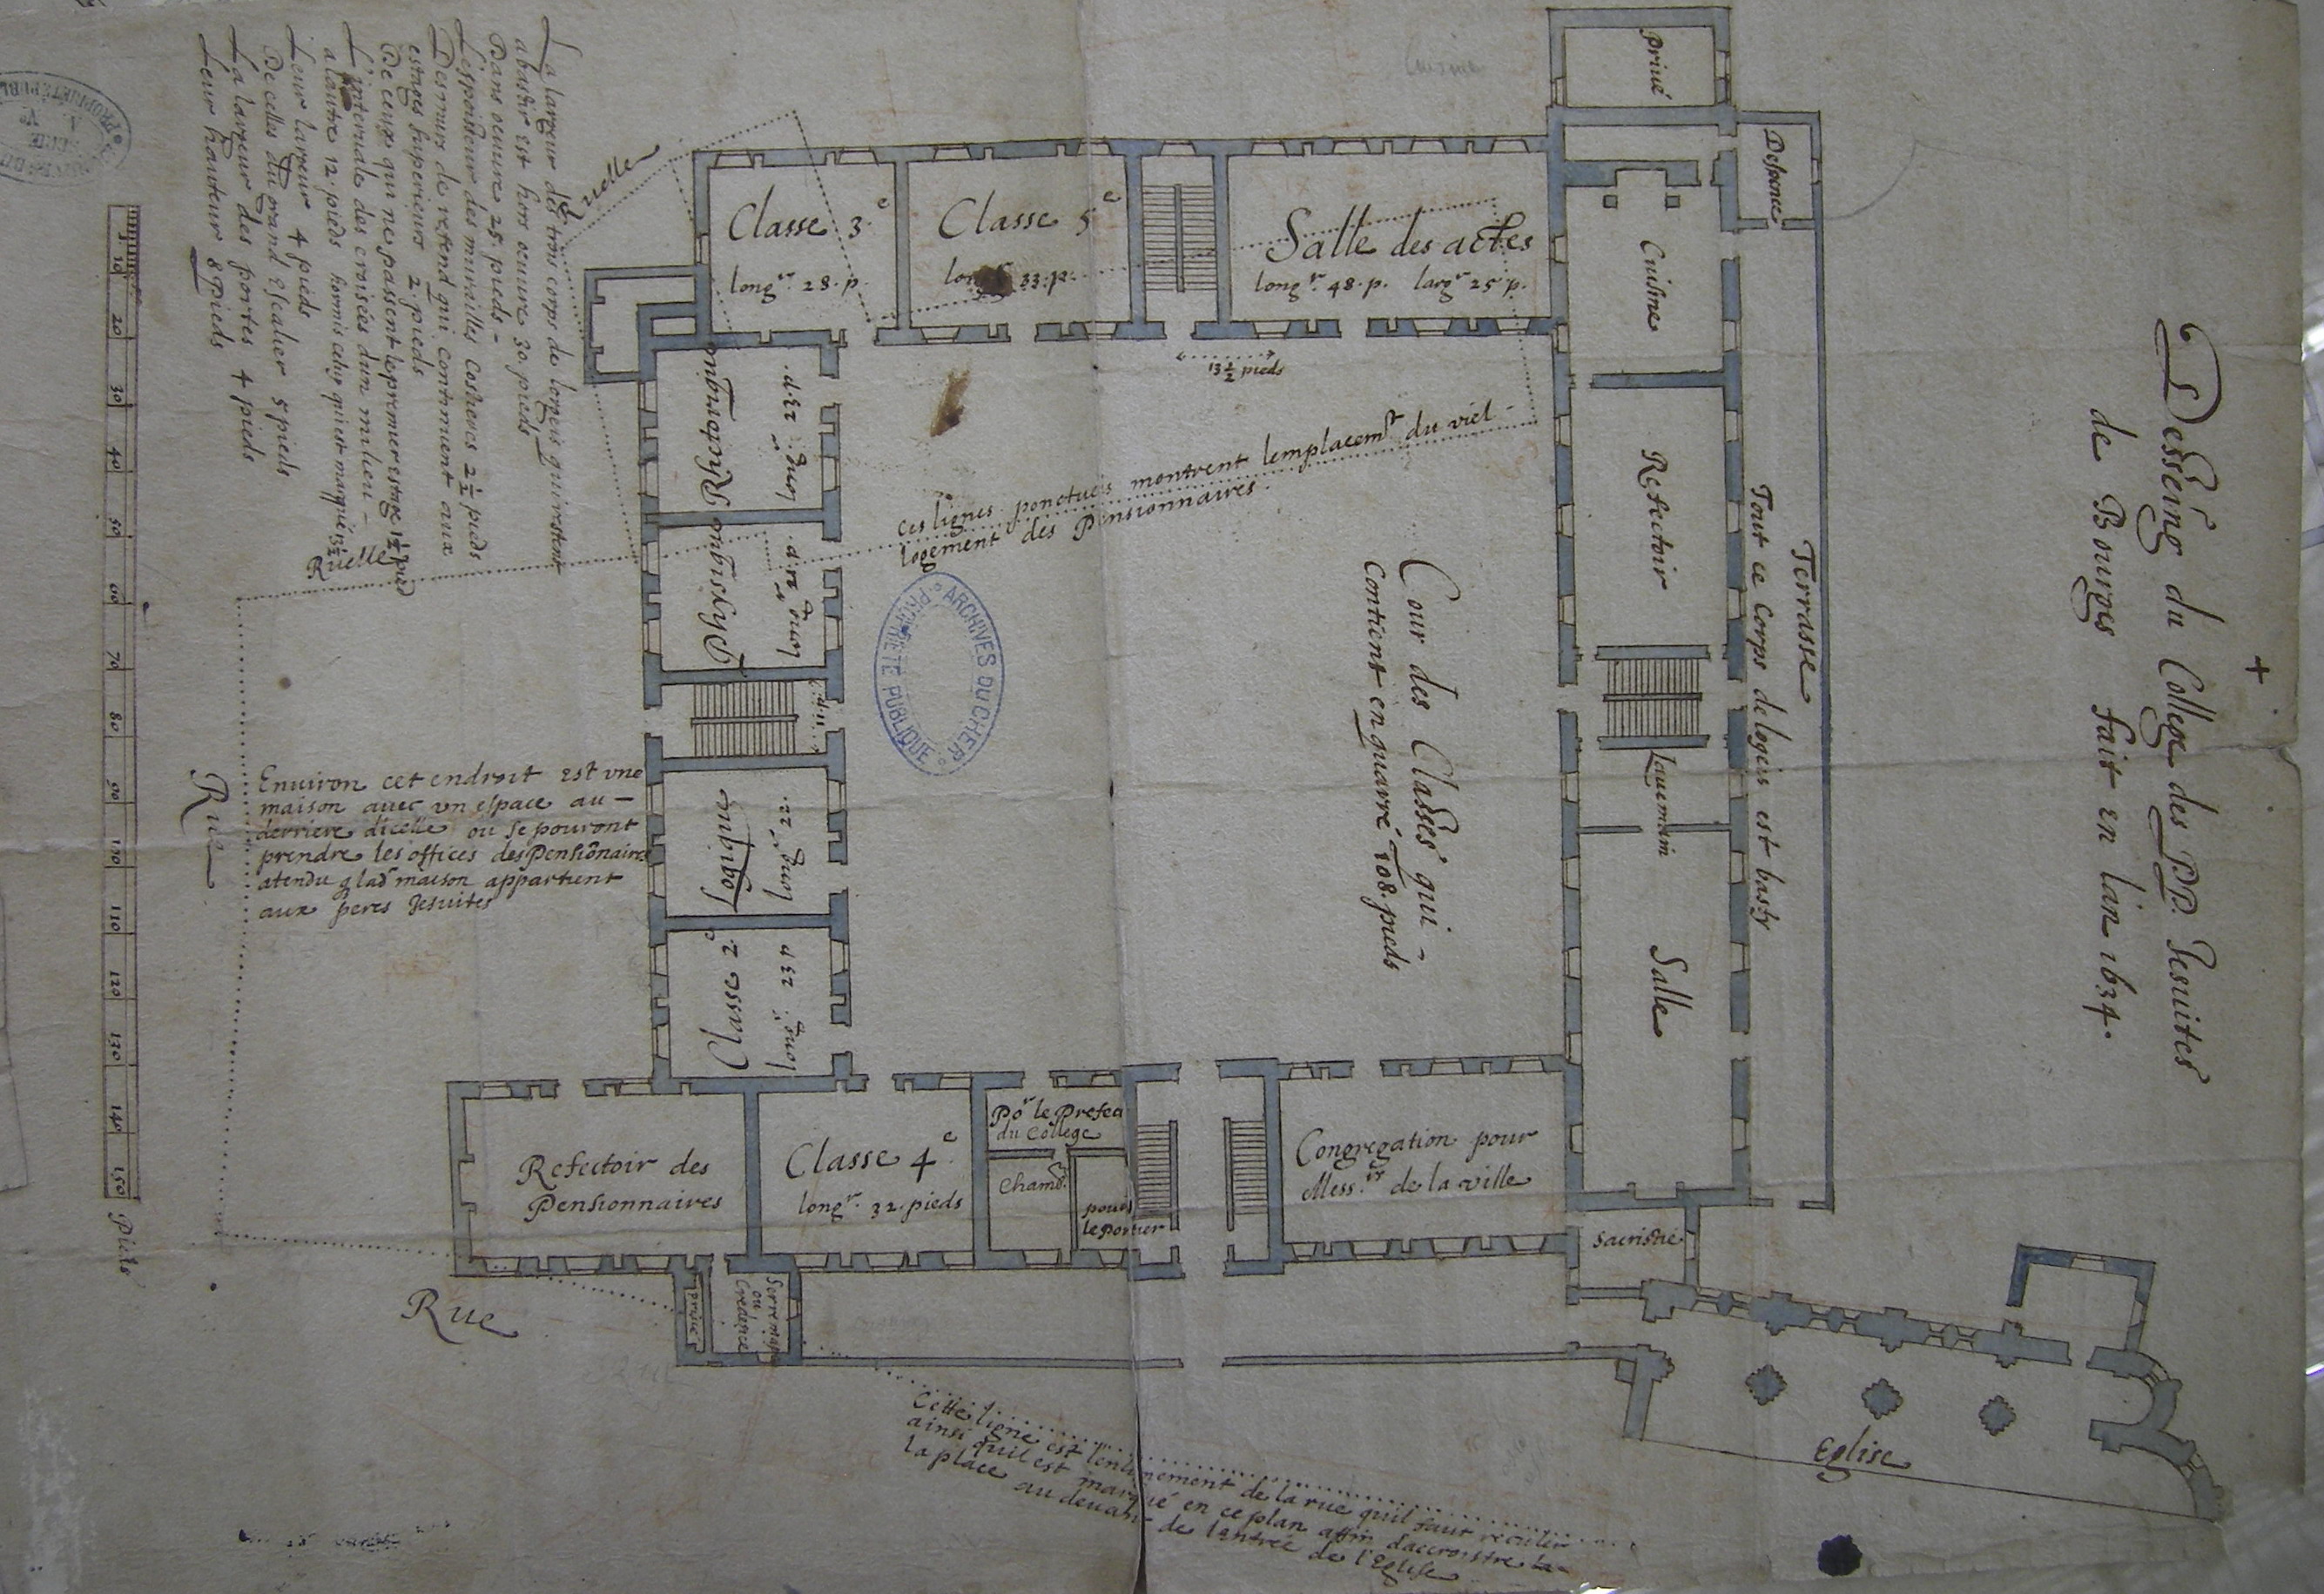 +
Desseing du College des PP. Jesuites
de Bourges fait en l'an 1634.
Terrasse
Tout ce corps de logeis est basty
privé
Despence
Cuisine
Refectoir
Lavemain
Salle
Sacristie
Eglise
Salle des actes
long.r 48. p. larg.r 25 p.
13 1/2 pieds
Classe 5.e
33. p.
Classe 3.e
long.r 28. p.
Ruelle
Rhetorique
long.r 23. p.
Physique
long.r 21. p.
11. p.
Logique
long.r 22.
Classe 2.e
long.r 23 4
Cour des Classes qui -
contient en quarré 108. pieds
ces lignes ponctueés montrent lemplacem.t du viel -
logement des Pensionnaires.
ARCHIVES DU CHER
PROPRIÉTÉ PUBLIQUE
Refectoir des
Pensionnaires
Classe 4.e
long.r 32. pieds
Po.r le Prefect
du College
Chamb.
pour
le portier
Congregation pour
Mess.rs de la ville
privé
Serre
ou
Credance
Rue
Cette ligne est l'enlignement de la rue quil faut reculer
ainsi quil est marqué en ce plan affin daccroistre la -
la place au devant de lentreé de l'Eglise
Environ cet endroit est une
maison avec un espace au -
derriere dicelle ou se pouront
prendre les offices des Pensionaires
atendu q lad maison appartient
aux peres Jesuites
Rue
Ruelle
La largeur des trois corps de logeis qui restent
a bastir est hors oeuvre 30. pieds
Dans oeuvre 25. pieds -
L'espoisseur des murailles Costieres 2 1/2 pieds
Des murs de refend qui continuent aux
estages superieurs 2. pieds
De ceux qui ne passent le premier estage 1 1/2 pied
L'intervale des croiseés dun milieu -
a lautre 12. pieds hormis celuy qui est marqué 13 1/2
Leur largeur 4 pieds
De celles du grand Escalier 5 pieds
La largeur des portes 4 pieds
Leur hauteur 8 pieds
10 20 30 40 50 60 70 80 90 100 110 120 130 140 150 Pieds